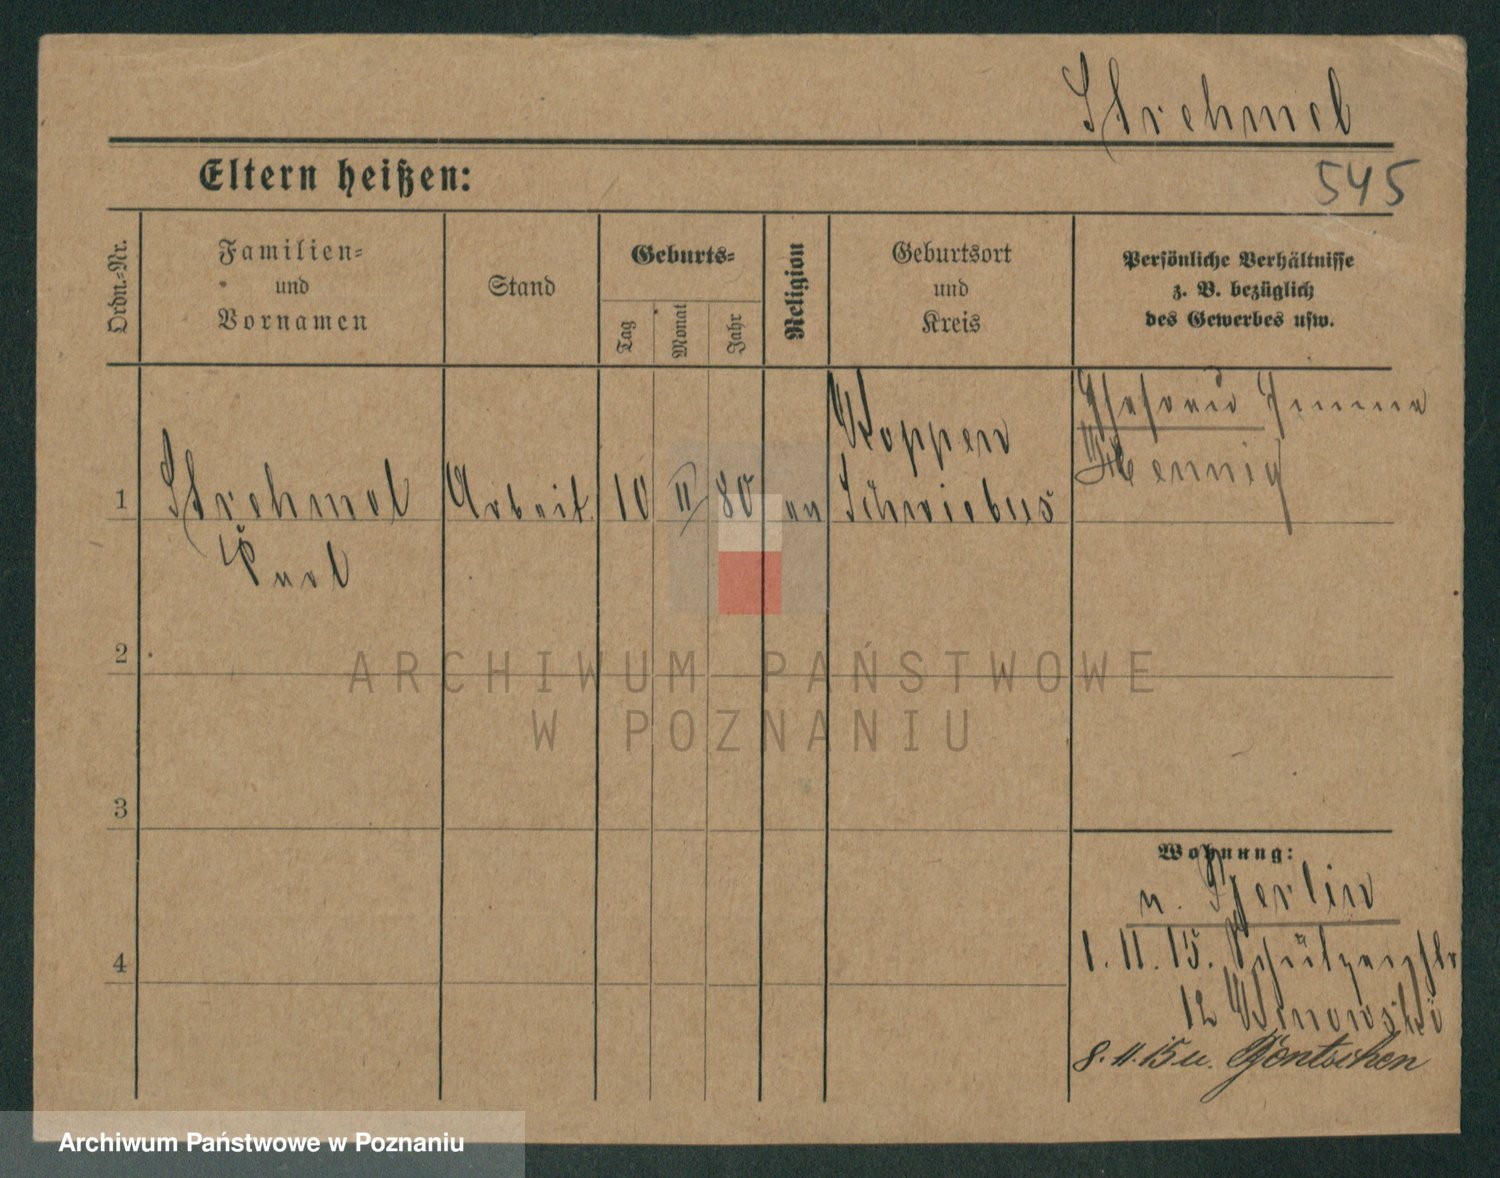 Strehmel
Eltern heißen:
545
Ordn.-Nr.
Familien-
und
Vornamen
Stand
Geburts-
Tag
Monat
Jahr
Religion
Geburtsort
und
Kreis
Persönliche Verhältnisse
z. B. bezüglich
des Gewerbes usw.
1
Strehmel
Paul
Arbeit.
10
II
80
ev
Koppen
Schwiebus
Ehefrau Emma
Hennig
2
3
4
Wohnung:
n. Berlin
1. 11. 15. Schützenstr
12
8. 11. 15 u. Bentschen
ARCHIWUM PAŃSTWOWE
W POZNANIU
Archiwum Państwowe w Poznaniu